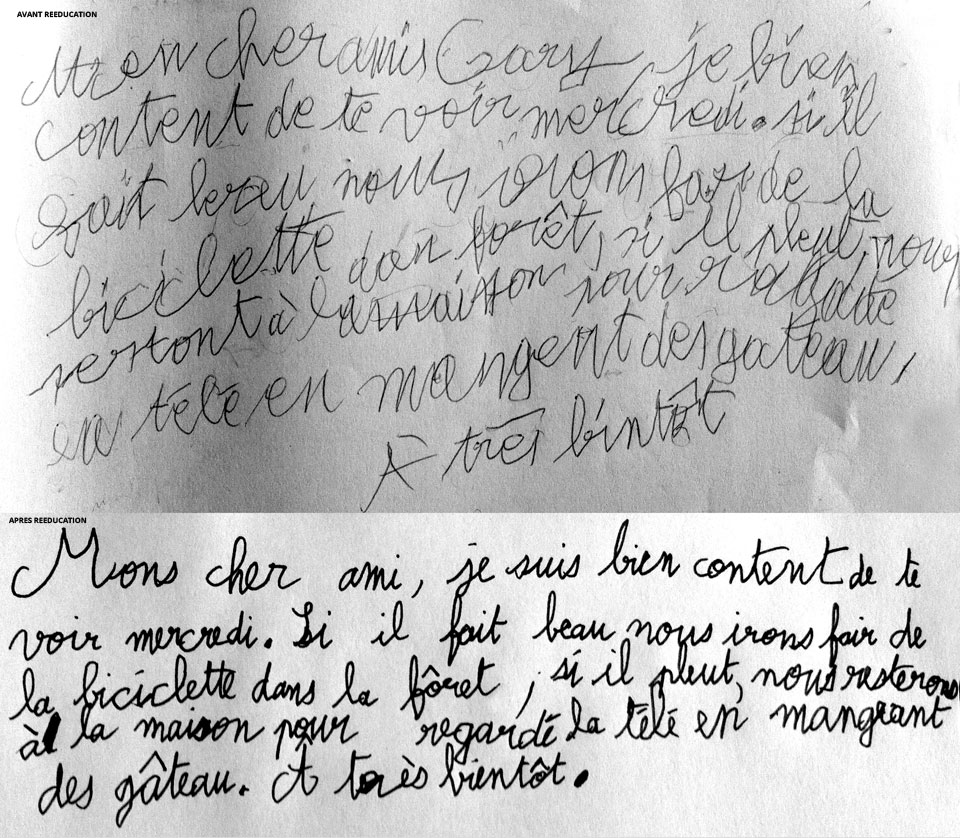 AVANT REEDUCATION
Mon cher amis Gary, je bien
content de te voir mercredi. si il
fait bereu nous irons far de la
biciclette dan forêt, si il pleut, nous
restont à la maison pour
la télé en mangent des gateau,
A très bintôt
APRES REEDUCATION
Mons cher ami, je suis bien content de te
voir mercredi. Si il fait beau nous irons fair de
la biciclette dans la fôret, si il pleut, nous resterons
à la maison pour regardé la télé en mangeant
des gâteau. A très bientôt.